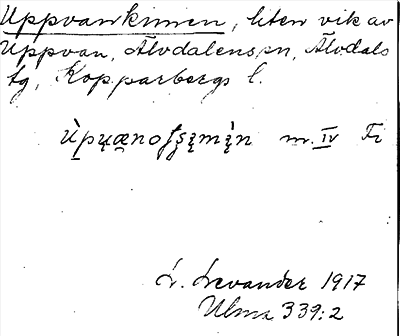 Uppvankinnen, liten vik av
Uppvan, Älvdalens sn, Älvdals
tg, Kopparbergs l.
m. IV
L. Levander 1917
Ulma 339:2